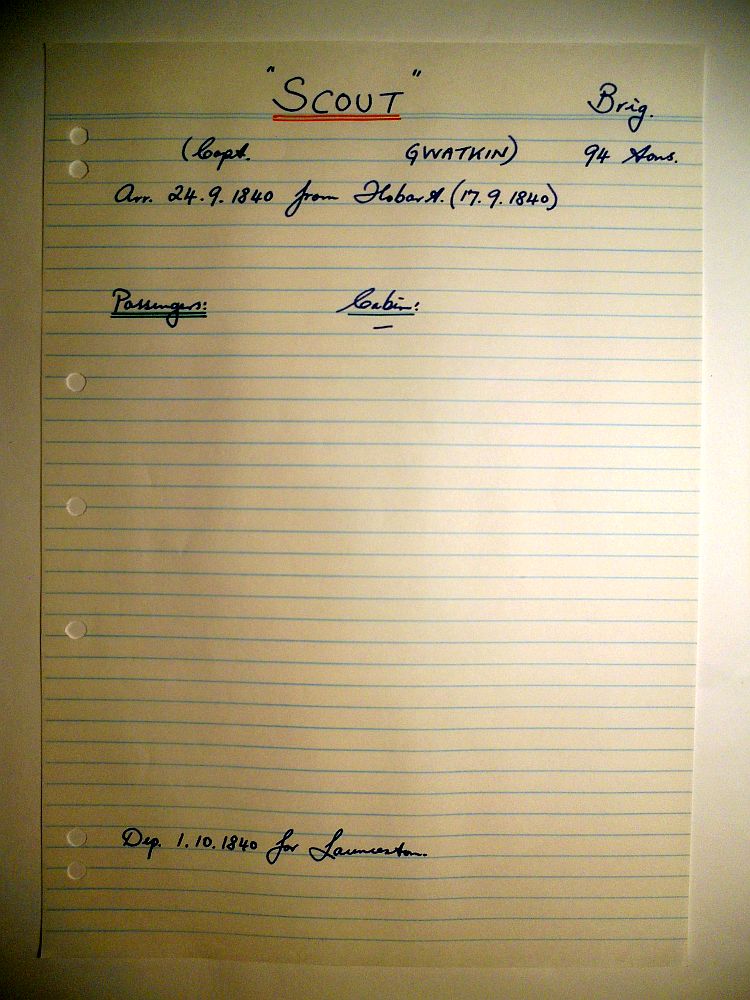 "SCOUT" Brig.
(Capt. GWATKIN) 94 tons.
Arr. 24.9.1840 from Hobart. (17.9.1840)
Passengers: Cabin:
—
Dep. 1.10.1840 for Launceston.